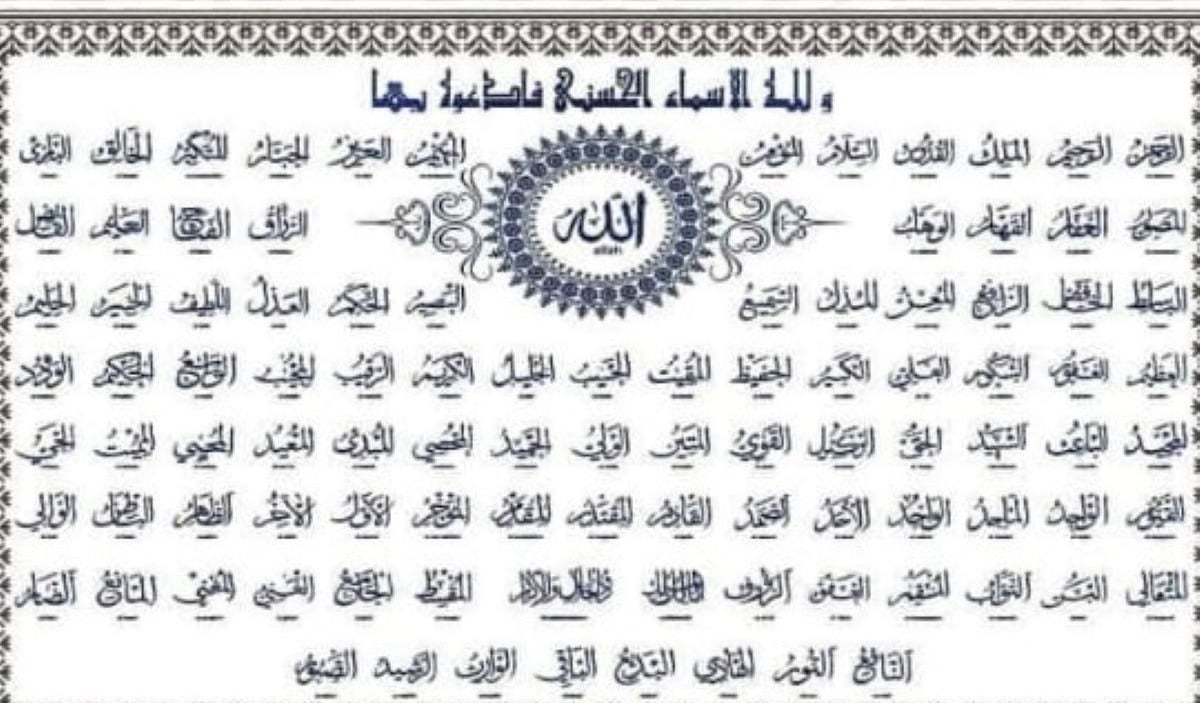 و لله الاسماء الحسنى فادعوه بها
الرحمن الرحيم الملك القدوس السلام المؤمن المهيمن العزيز الجبار المتكبر الخالق البارئ
المصور الغفار القهار الوهاب الله الرزاق الفتاح العليم القابض
allah
الباسط الخافض الرافع المعز المذل السميع البصير الحكم العدل اللطيف الخبير الحليم
العظيم الغفور الشكور العلي الكبير الحفيظ المقيت الحسيب الجليل الكريم الرقيب المجيب الواسع الحكيم الودود
المجيد الباعث الشهيد الحق الوكيل القوي المتين الولي الحميد المحصي المبدئ المعيد المحيي المميت الحي
القيوم الواجد الماجد الواحد الأحد الصمد القادر المقتدر المقدم المؤخر الأول الآخر الظاهر الباطن الوالي
المتعالي البر التواب المنتقم العفو الرؤوف مالك الملك ذو الجلال والإكرام المقسط الجامع الغني المغني المانع الضار
النافع النور الهادي البديع الباقي الوارث الرشيد الصبور